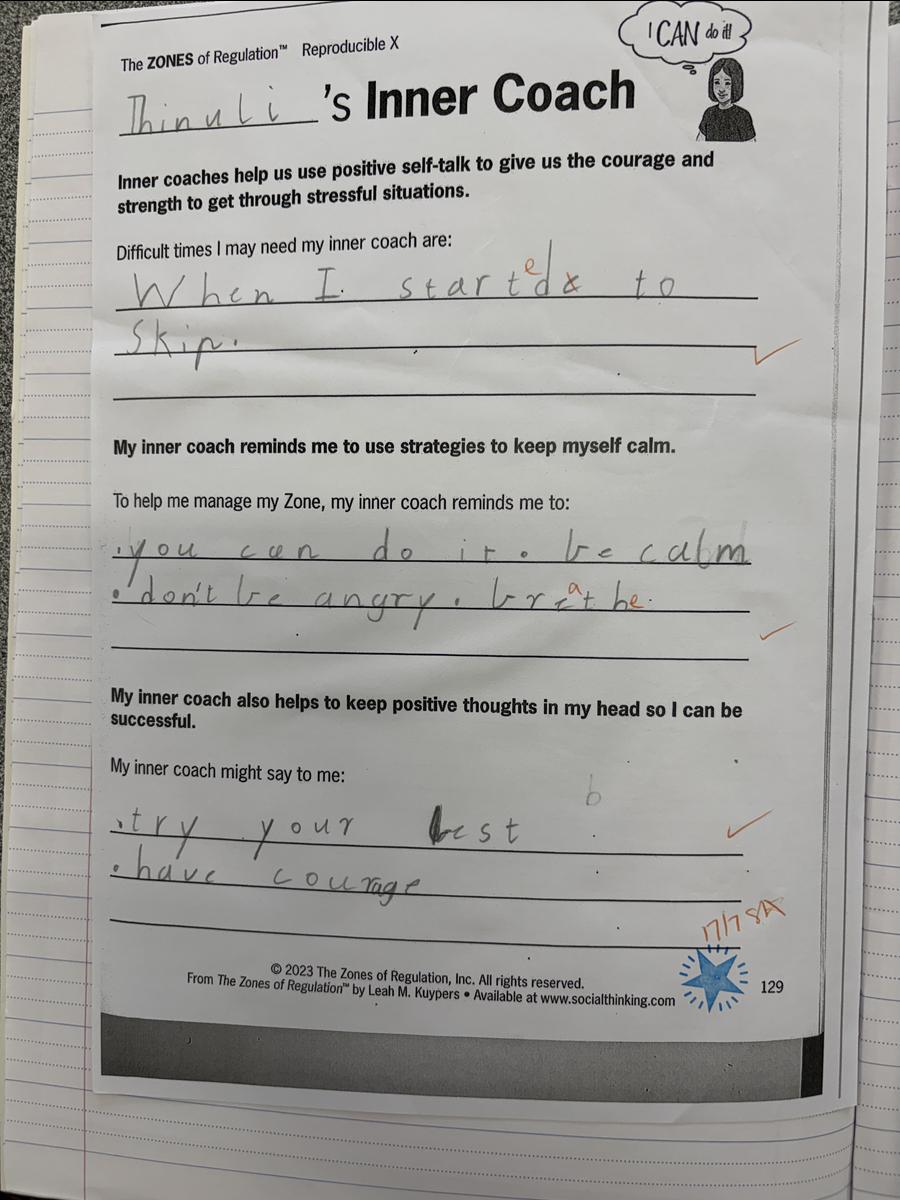 I CAN do it!
The ZONES of Regulation™ Reproducible X
Thinuli 's Inner Coach
Inner coaches help us use positive self-talk to give us the courage and
strength to get through stressful situations.
Difficult times I may need my inner coach are:
When I started to
skip.
My inner coach reminds me to use strategies to keep myself calm.
To help me manage my Zone, my inner coach reminds me to:
.you can do it. be calm
. don't be angry. breathe.
My inner coach also helps to keep positive thoughts in my head so I can be
successful.
My inner coach might say to me:
b
.try your best
.have courage
17/7 SA
© 2023 The Zones of Regulation, Inc. All rights reserved.
From The Zones of Regulation™ by Leah M. Kuypers • Available at www.socialthinking.com
129